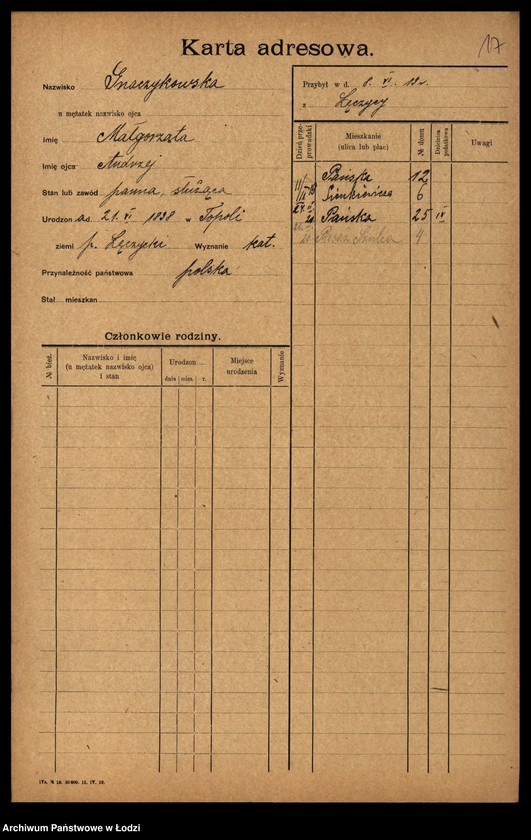 17
Karta adresowa.
Nazwisko Gnaczykowska
u mężatek nazwisko ojca
Imię Małgorzata
Imię ojca Andrzej
Stan lub zawód panna, służąca
Urodzon ad. 21. VI 1898 w Topoli
ziemi p. Łęczycki Wyznanie kat.
Przynależność państwowa polska
Stał. mieszkan
Przybył w d. 8. VI.
z Łęczycy
Dzień prze-prowadzki
Mieszkanie
(ulica lub plac)
№ domu
Dzielnica
podatkowa
Uwagi
Pańska 12
Sienkiewicza 6
Pańska 25 IV
4
Członkowie rodziny.
№ bież.
Nazwisko i imię
(u mężatek nazwisko ojca)
i stan
Urodzon
dnia mies. r.
Miejsce
urodzenia
Wyznanie
Archiwum Państwowe w Łodzi